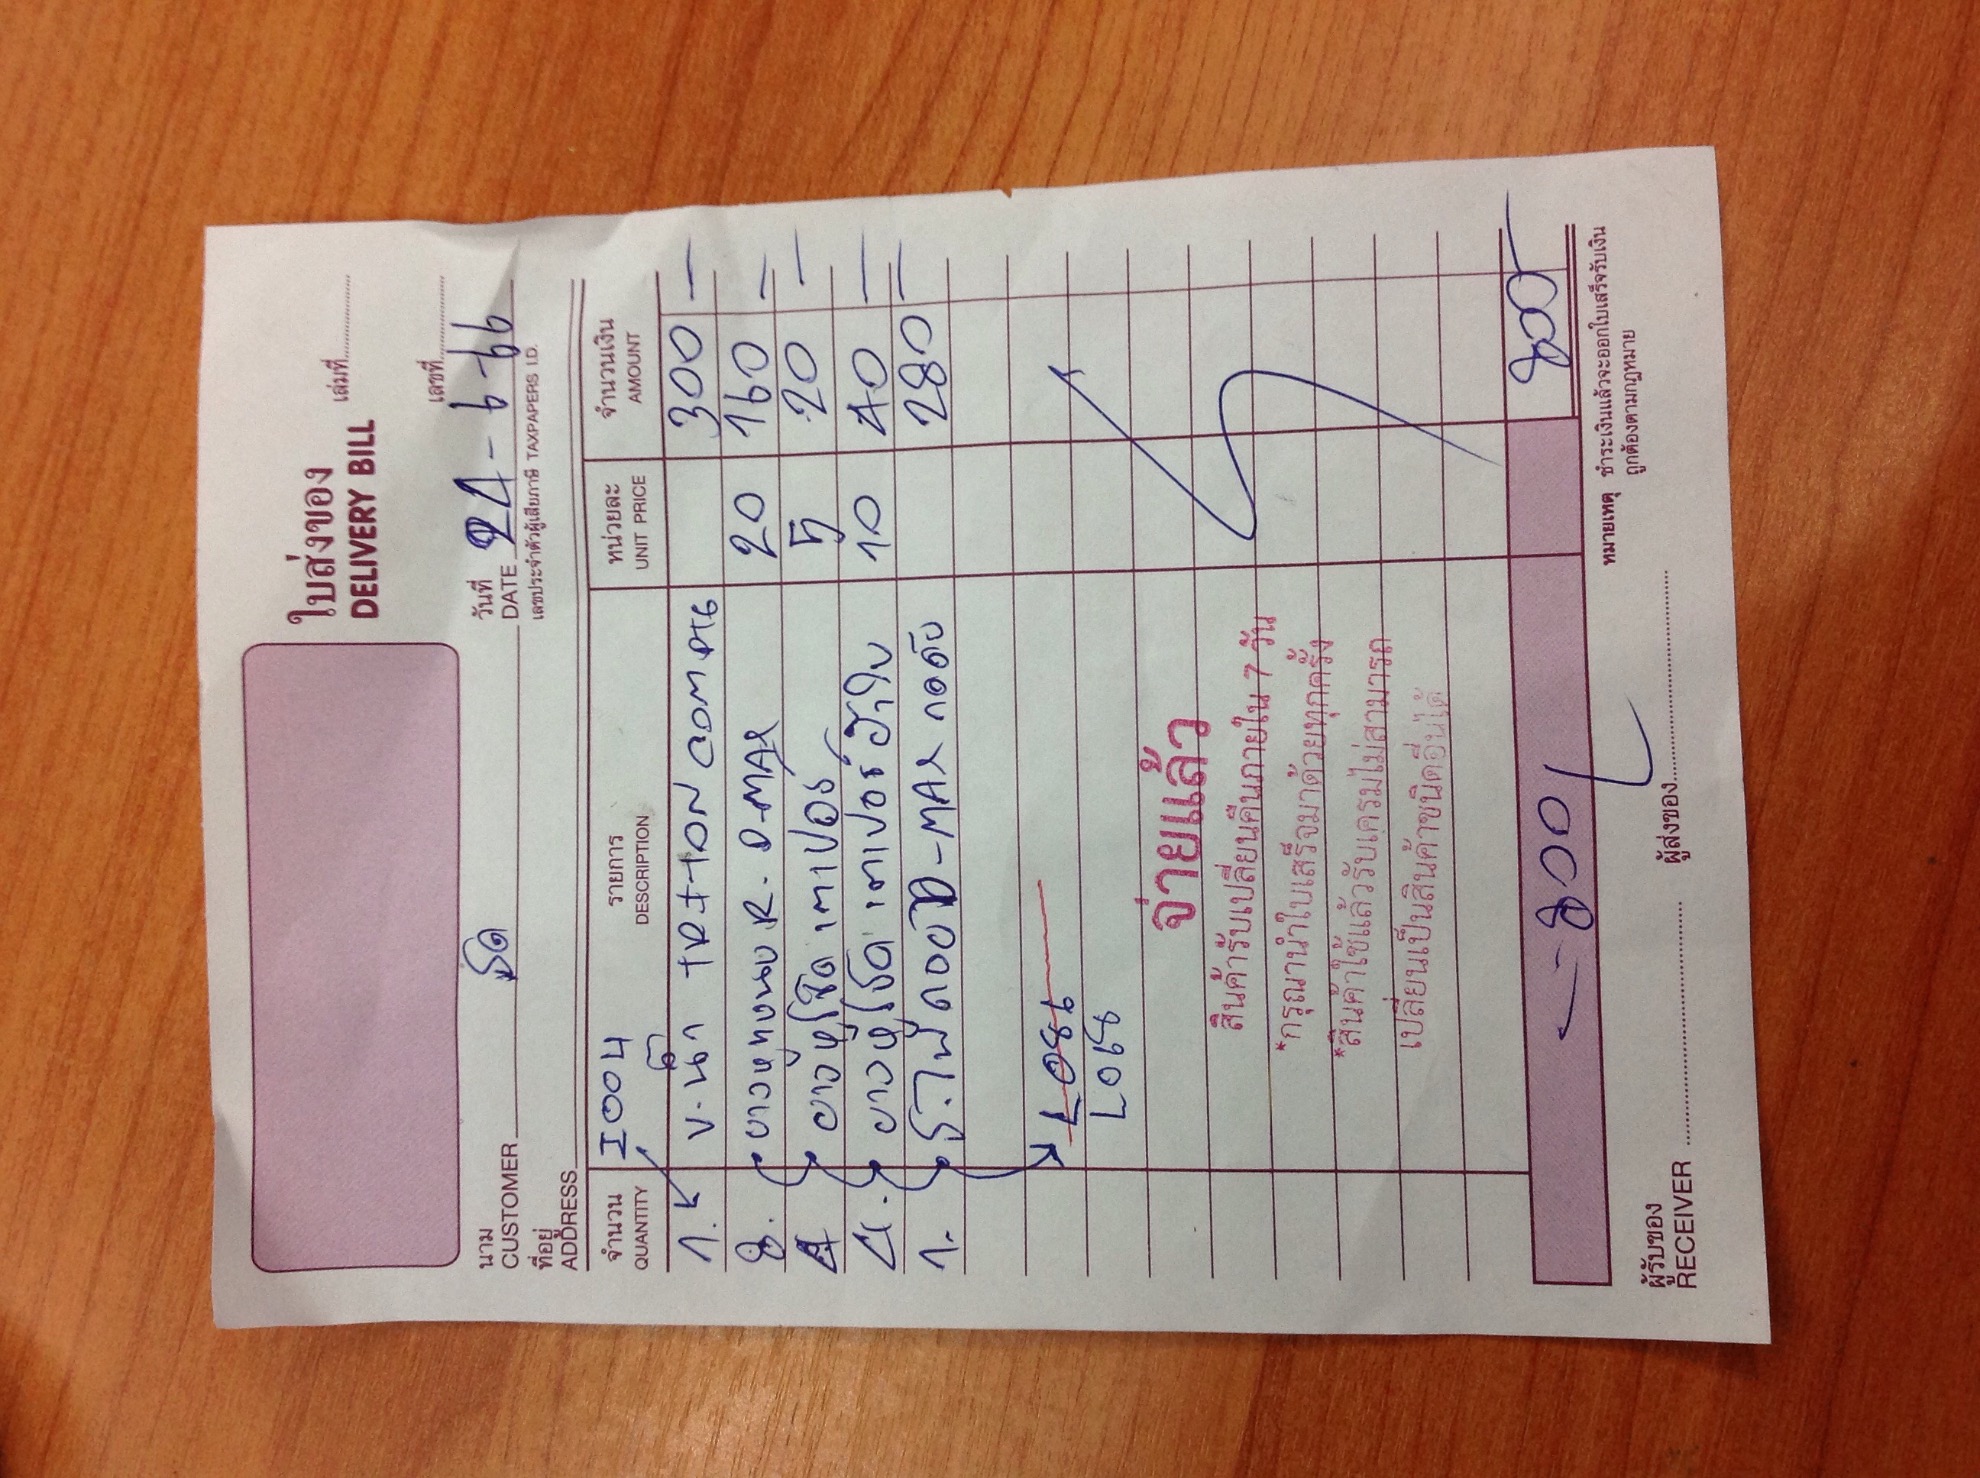 ใบส่งของ
DELIVERY BILL
เล่มที่
เลขที่
นาม
CUSTOMER
วันที่
DATE 24-6-66
ที่อยู่
ADDRESS
เลขประจำตัวผู้เสียภาษี TAXPAPERS I.D.
จำนวน รายการ หน่วยละ จำนวนเงิน
QUANTITY DESCRIPTION UNIT PRICE AMOUNT
I004
1. TRITON 300 -
8. R. D-MAX 20 160 -
4 5 20 -
4. 10 40 -
1. D-MAX 280 -
L086
L068
จ่ายแล้ว
สินค้ารับเปลี่ยนคืนภายใน 7 วัน
*กรุณานำใบเสร็จมาด้วยทุกครั้ง
*สินค้าใช้แล้วรับเครมไม่สามารถ
เปลี่ยนเป็นสินค้าชนิดอื่นได้
800 800
หมายเหตุ ชำระเงินแล้วจะออกใบเสร็จรับเงิน
ถูกต้องตามกฎหมาย
ผู้รับของ
RECEIVER
ผู้ส่งของ